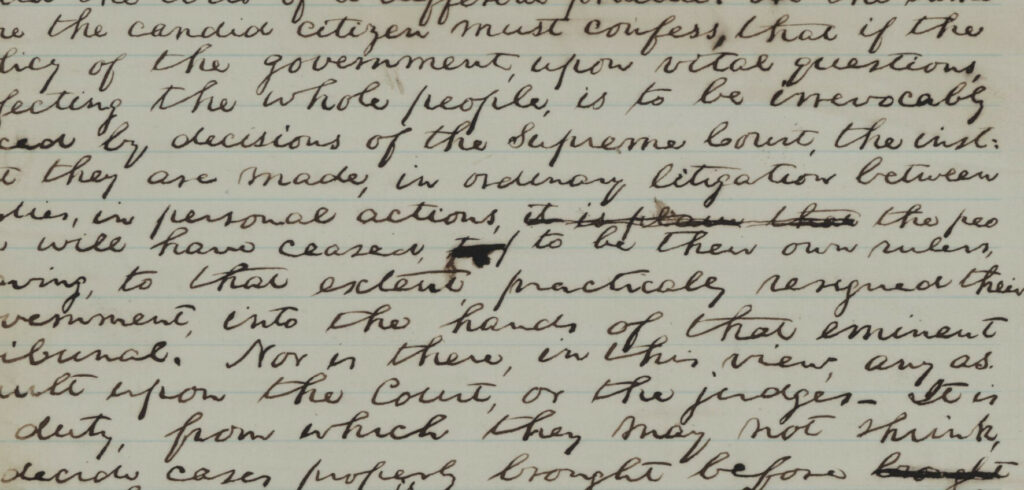 the evils of a different practice. At the same
re the candid citizen must confess, that if the
licy of the government, upon vital questions,
fecting the whole people, is to be irrevocably
ced by decisions of the Supreme Court, the inst:
t they are made, in ordinary litigation between
rties, in personal actions, it is plain that the peo
will have ceased, to be their own rulers,
aving, to that extent, practically resigned their
vernment, into the hands of that eminent
ibunal. Nor is there, in this view, any as
ault upon the Court, or the judges— It is
duty, from which they may not shrink,
decide cases properly brought before brought